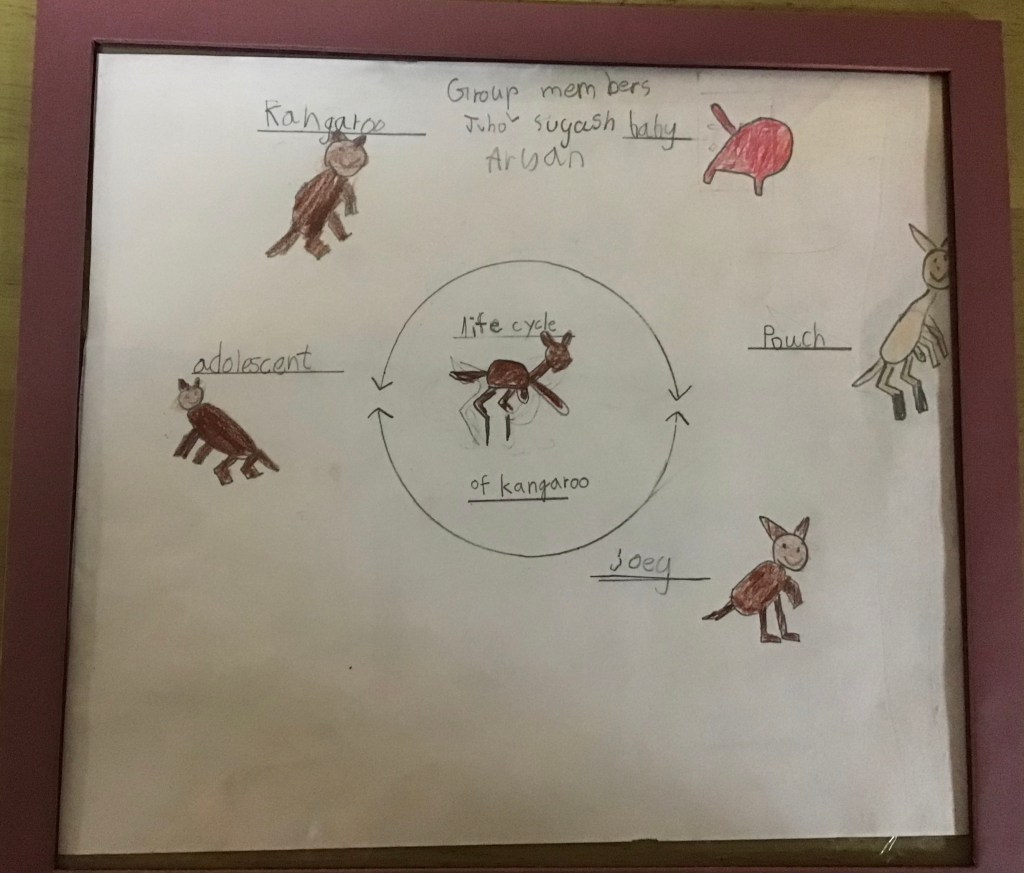 Group members
Kangaroo
Juho sugash baby
Arban
life cycle
Pouch
adolescent
of kangaroo
Joey